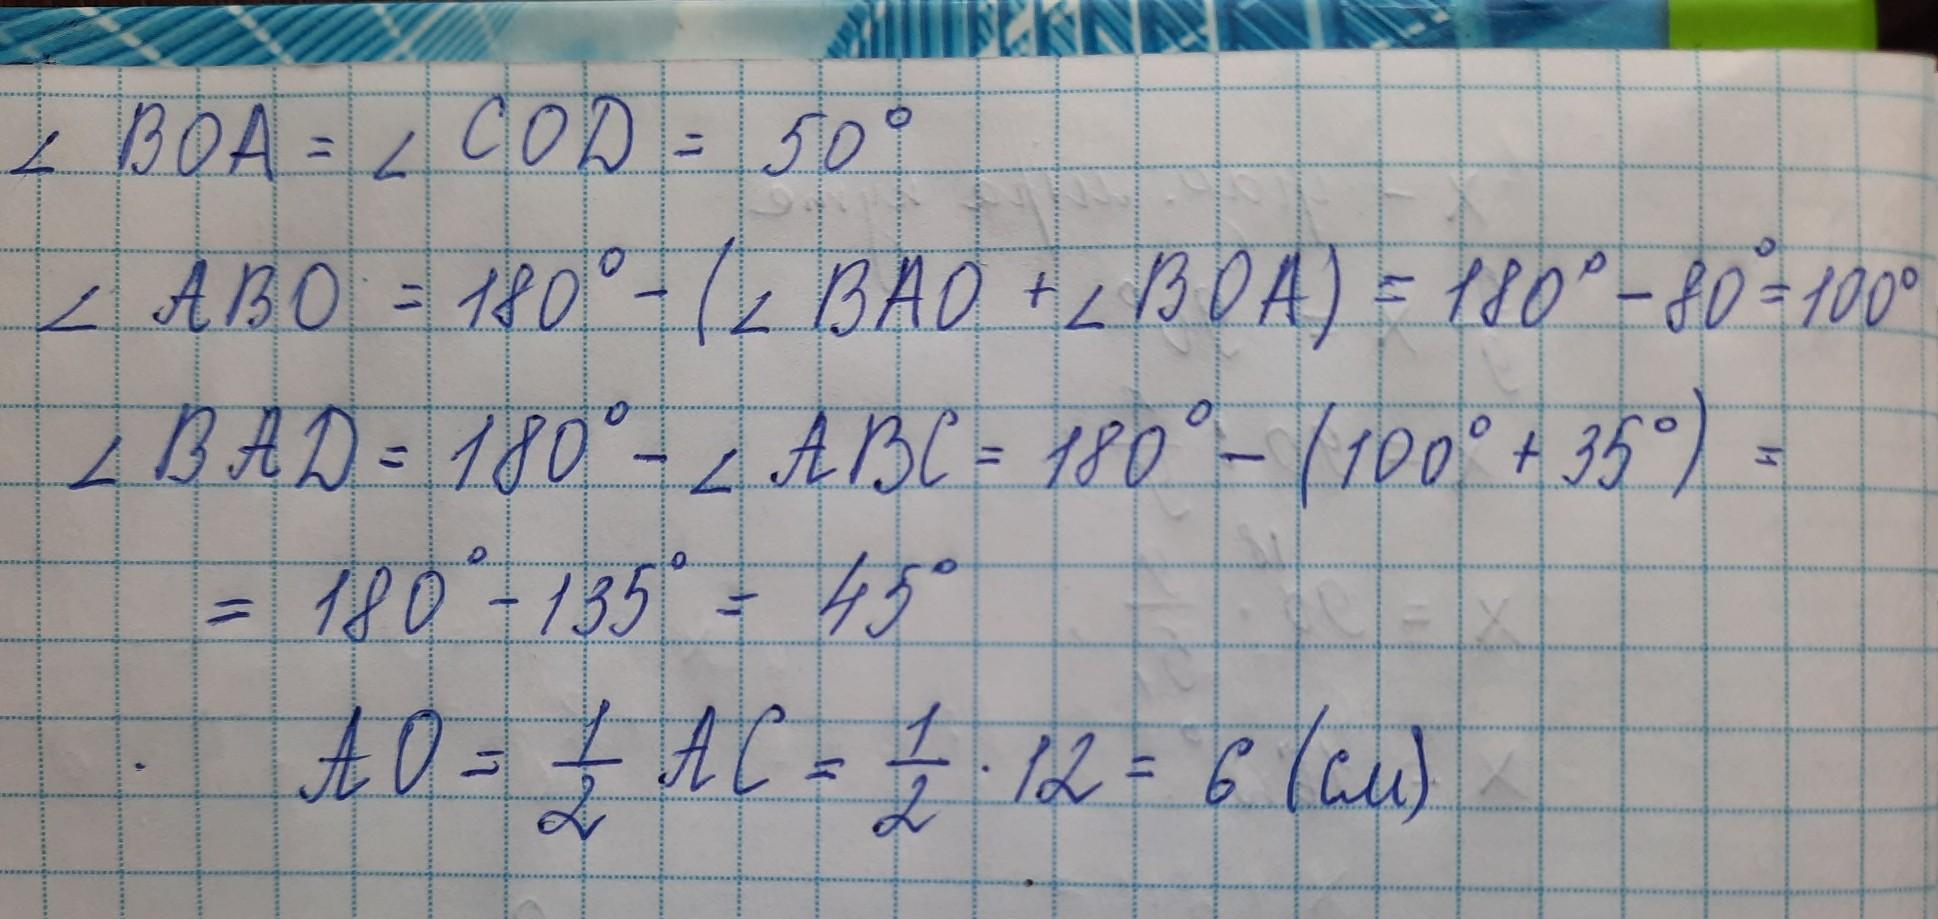 ∠ BOA = ∠ COD = 50°
∠ ABO = 180° - (∠ BAO + ∠ BOA) = 180° - 80° = 100°
∠ BAD = 180° - ∠ ABC = 180° - (100° + 35°) =
= 180° - 135° = 45°
AO = 1/2 AC = 1/2 · 12 = 6 (см)